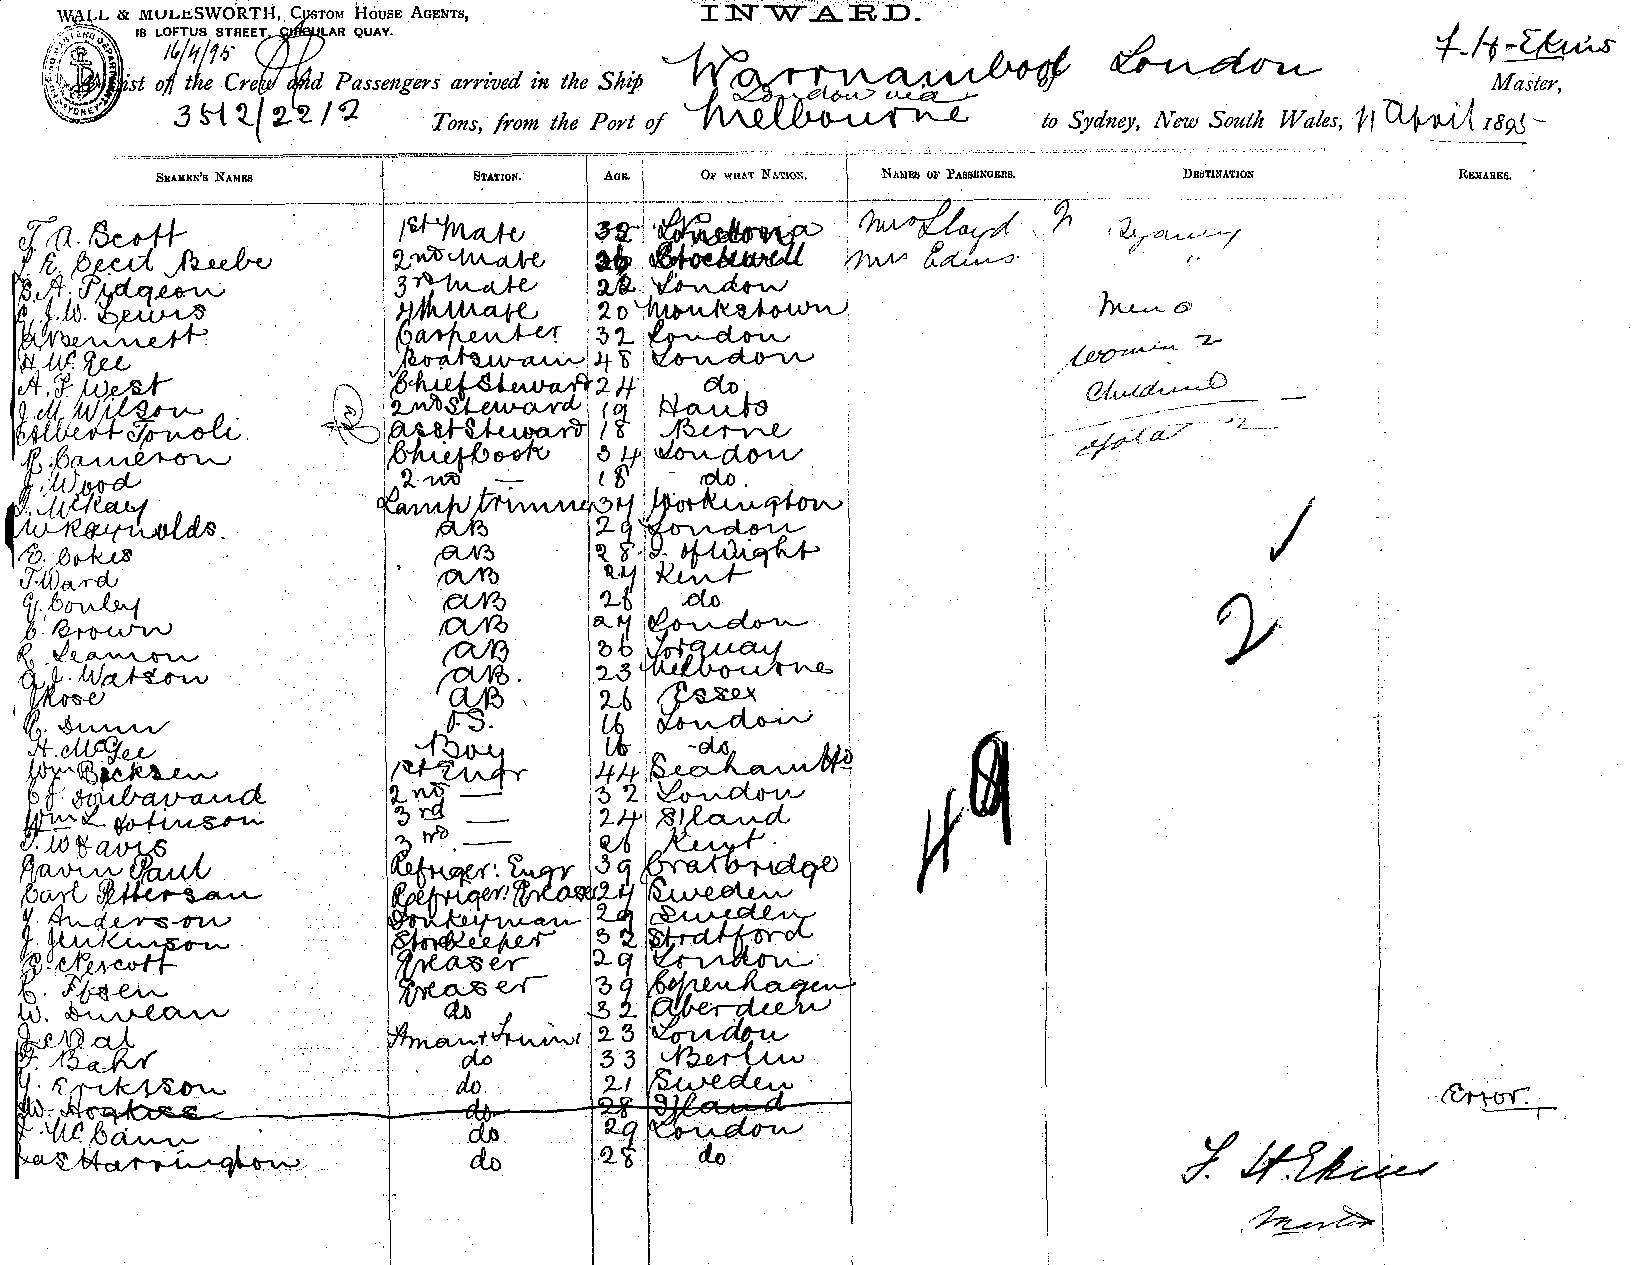 WALL & MOLESWORTH, CUSTOM HOUSE AGENTS,
18 LOFTUS STREET, CIRCULAR QUAY.
INWARD.
16/4/95
F. H. Ekins
List of the Crew and Passengers arrived in the Ship Warrnambool of London Master,
London via
3512/22/2 Tons, from the Port of Melbourne to Sydney, New South Wales, 11 April 1895
SEAMEN'S NAMES STATION. AGE. OF WHAT NATION. NAMES OF PASSENGERS. DESTINATION REMARKS.
A. Scott 1st Mate 32 Mrs Lloyd Sydney
E. Cecil Beebe 2nd Mate 26 Stockwell Mrs Edins "
A. Pidgeon 3rd Mate 22 London
J. W. Lewis 4th Mate 20 Monkstown Men 0
Bennett Carpenter 32 London
H McGee Boatswain 48 London Women 2
A. F. West Chief Steward 24 do Children 0
J. M. Wilson 2nd Steward 19 Hants
Albert Tonoli Asst Steward 18 Berne Total 2
R. Cameron Chief Cook 34 London
J. Wood 2nd — 18 do.
McKay Lamp trimmer 34 Workington
W Raynolds. AB 29 London
E. Cokes AB 28 I. of Wight
T. Ward AB 24 Kent
G. Conley AB 28 do
C. Brown AB 24 London
R. Seamon AB 36 Torquay
G. J. Watson AB. 23 Melbourne
J Rose AB 26 Essex
R. Dunn O.S. 16 London
H. McGee Boy 16 do
Wm Bicksen 1st Engr 44 Seaham Hr
2nd — 32 London
Wm L Rotinson 3rd — 24 Island
J. W Davis 3rd — 26 Kent
Gavin Paul Refriger: Engr 39 Coatbridge
Carl Petterson Refriger: Greaser 24 Sweden
J. Anderson Donkeyman 29 Sweden
J. Jenkinson Storekeeper 32 Stratford
Prescott Greaser 29 London
C. Ibsen Greaser 39 Copenhagen
W. Duncan do 32 Aberdeen
23 London
F. Bahr do 33 Berlin
Y. Eriksson do 21 Sweden
W. Hopkiss do 28 Island Error.
J. McCann do 29 London
Jas Harrington do 28 do
2
49
F. H. Ekins
Master